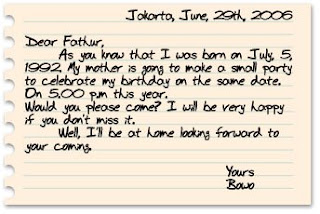 Jakarta, June, 29th, 2006
Dear Fathur,
As you know that I was born on July, 5,
1992. My mother is going to make a small party
to celebrate my birthday on the same date.
On 5.00 p.m this year.
Would you please come? I will be very happy
if you don't miss it.
Well, I'll be at home looking forward to
your coming.
Yours
Bowo